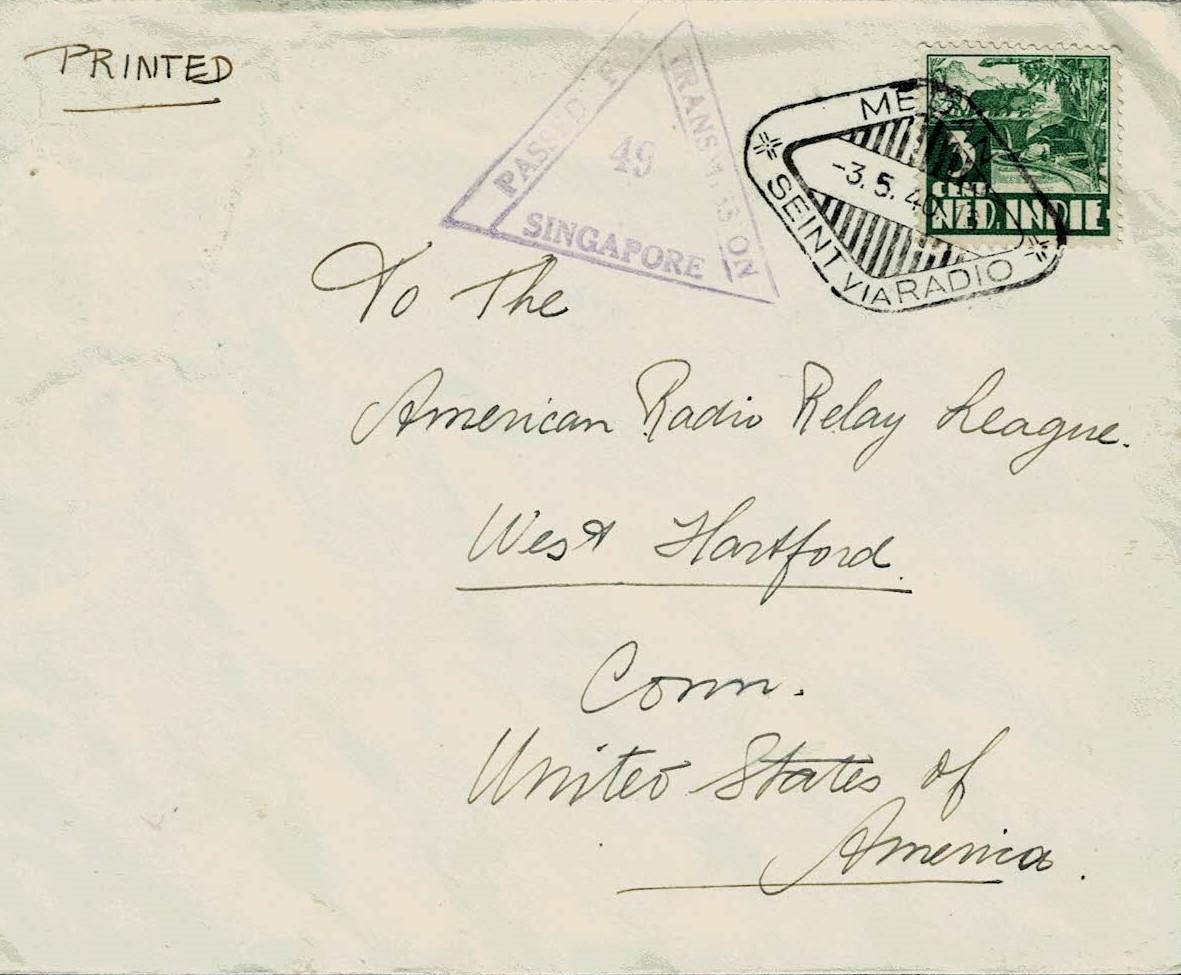 PRINTED
PASSED FOR TRANSMISSION
49
SINGAPORE
MEDAN
-3.5.40
SEINT VIA RADIO
CENT
NED. INDIE
To The
American Radio Relay League.
West Hartford.
Conn.
United States of
America.